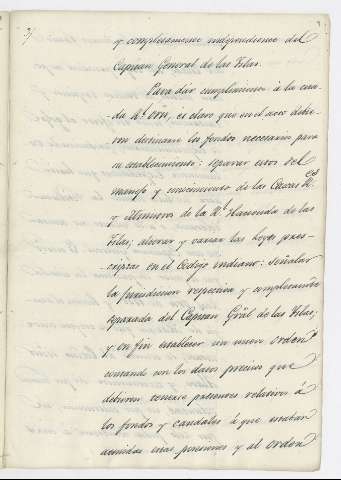 y completamente independiente del
Capitan General de las Islas.
Para dar cumplimiento à la cita-
da Rl. orn, es claro que en el acto debie-
ron destinarse los fondos necesarios para
su establecimiento: separar estos del
manejo y conocimiento de las Caxas Rs
y Ministros de la Rl. Hacienda de las
Islas; alterar y variar las leyes pres-
criptas en el Codigo indiano: señalar
la jurisdiccion respectiva y
separada del Capitan Gral de las Islas;
y en fin establecer un nuevo orden
contando con los datos precisos que
debieron tenerse presentes relativos à
los fondos y caudales à que estaban
las pensiones y al orden